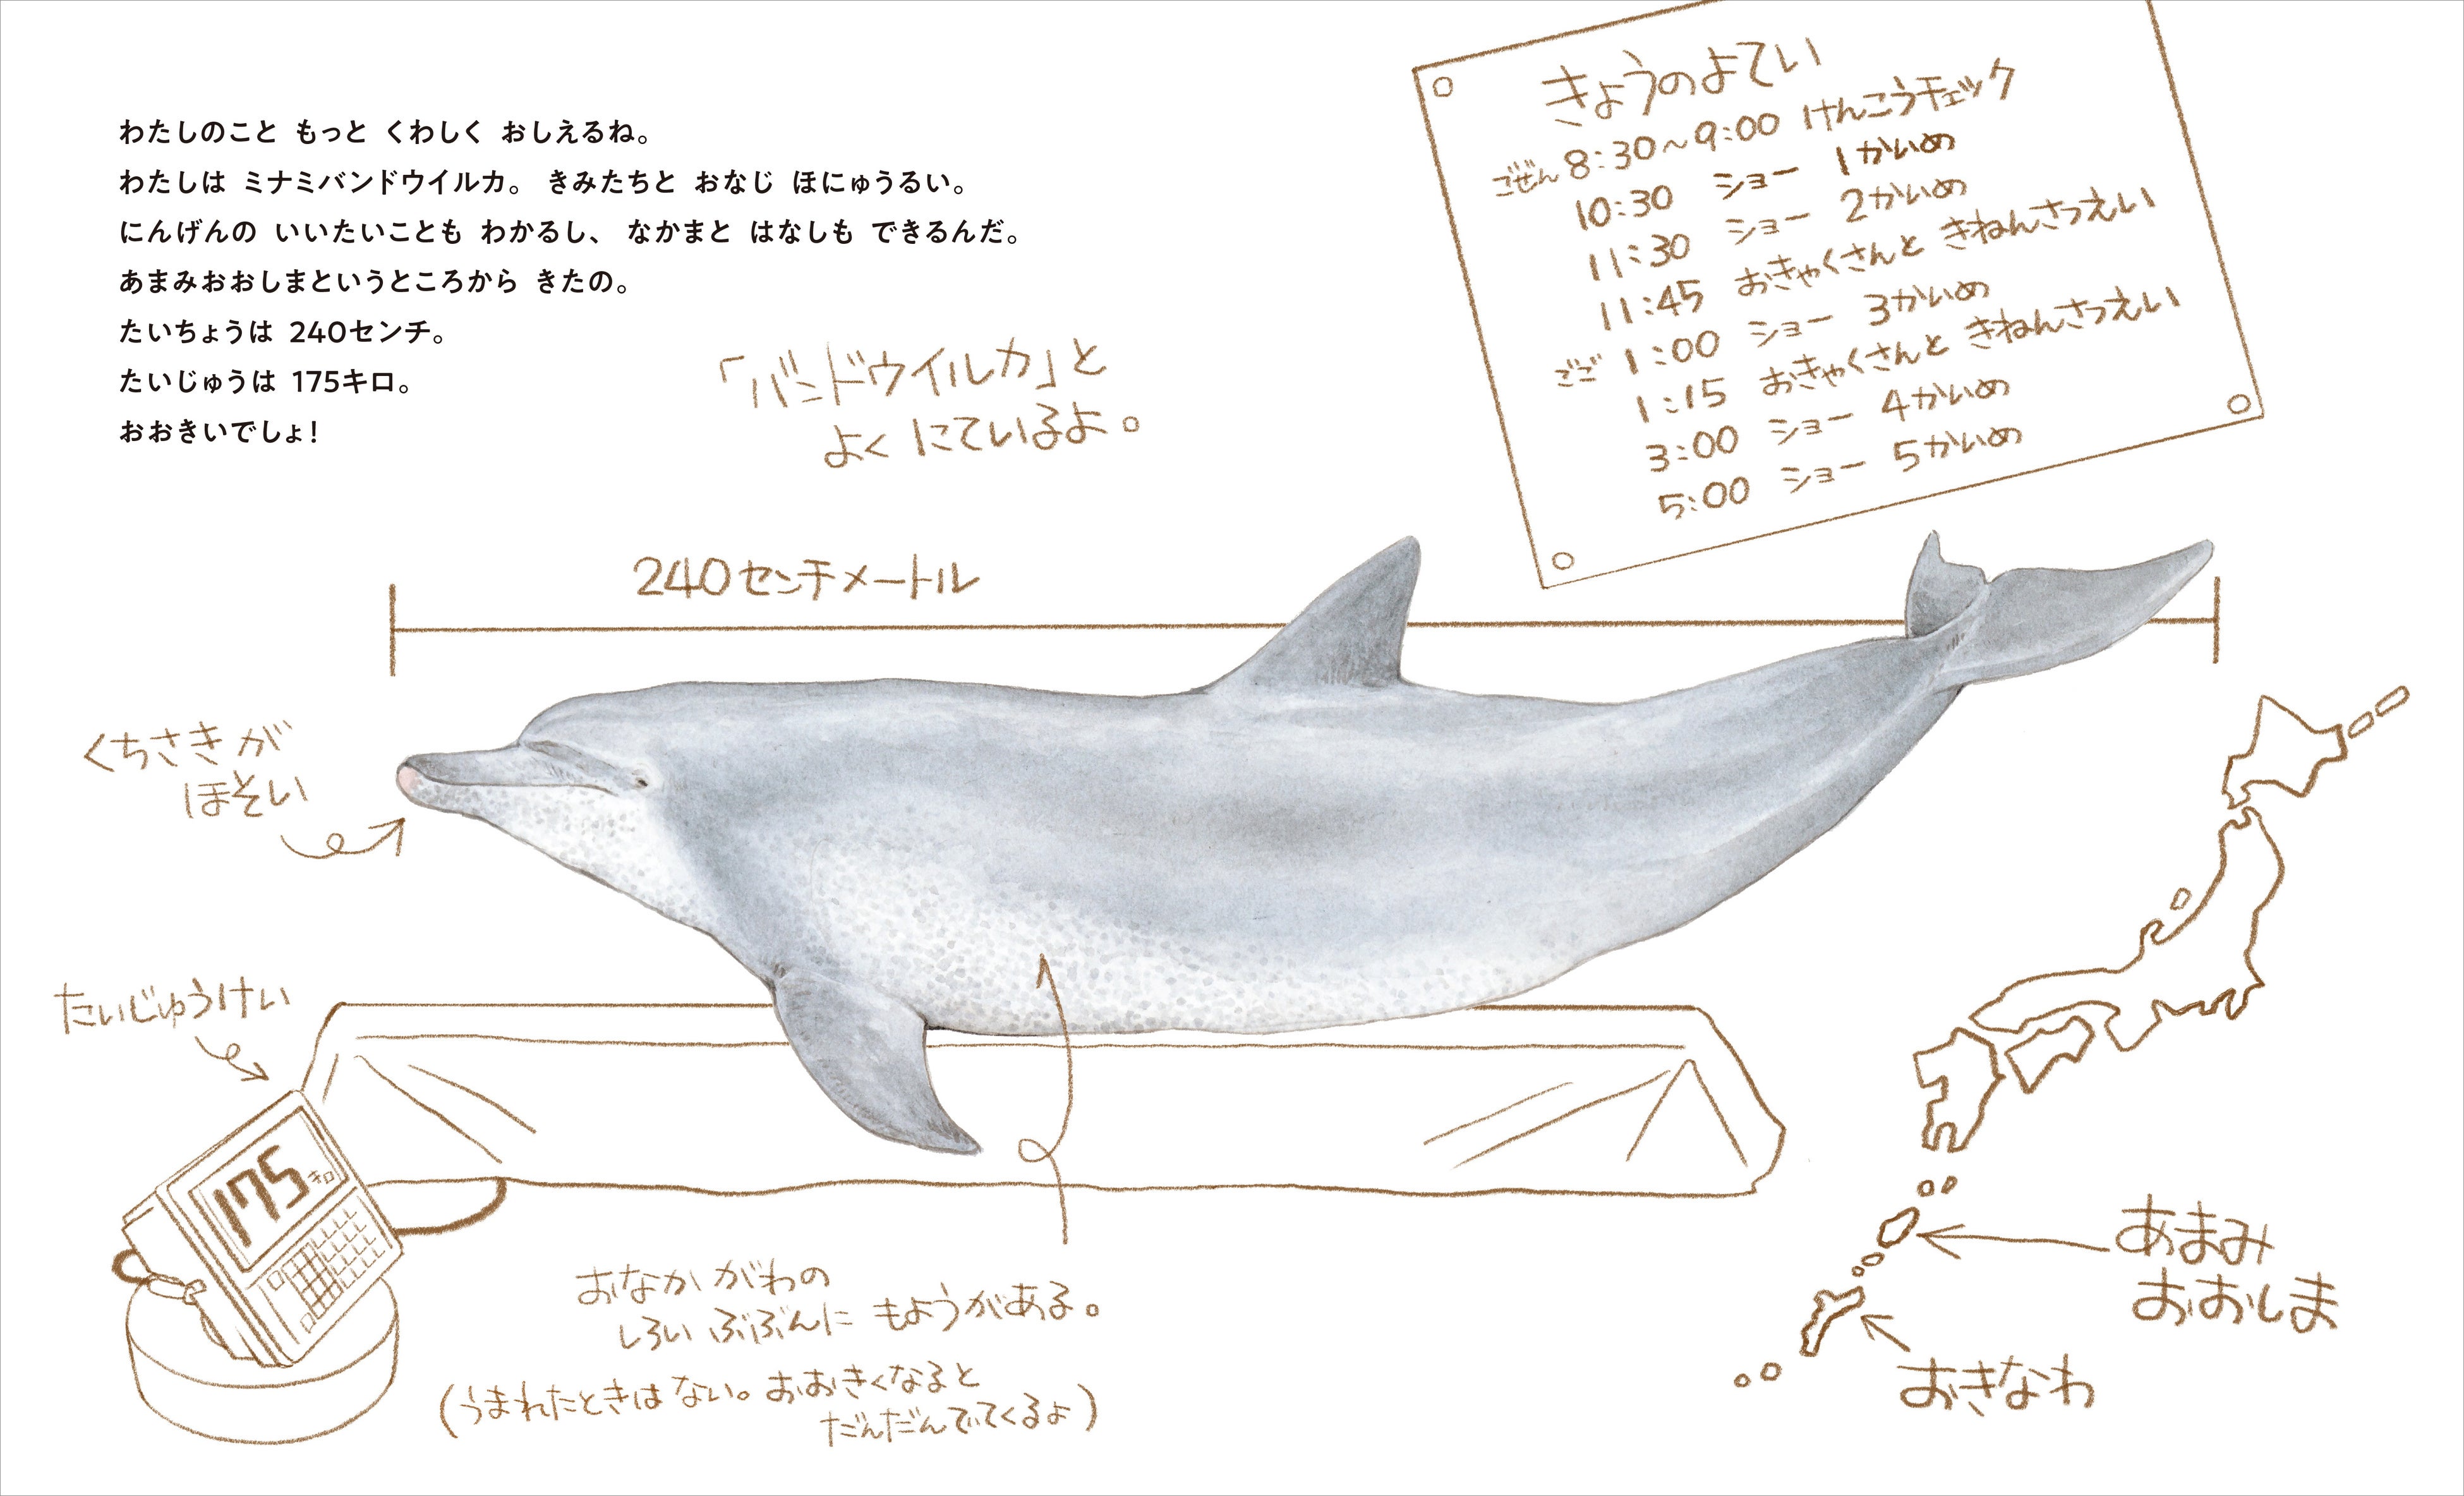 わたしのこと もっと くわしく おしえるね。
わたしは ミナミバンドウイルカ。 きみたちと おなじ ほにゅうるい。
にんげんの いいたいことも わかるし、 なかまと はなしも できるんだ。
あまみおおしまというところから きたの。
たいちょうは 240センチ。
たいじゅうは 175キロ。
おおきいでしょ！
「バンドウイルカ」と
よく にているよ。
きょうのよてい
ごぜん 8:30~9:00 けんこうチェック
10:30 ショー 1かいめ
11:30 ショー 2かいめ
11:45 おきゃくさんと きねんさつえい
ごご 1:00 ショー 3かいめ
1:15 おきゃくさんと きねんさつえい
3:00 ショー 4かいめ
5:00 ショー 5かいめ
240センチメートル
くちさきが
ほそい
たいじゅうけい
175キロ
おなかがわの
しろい ぶぶんに もようがある。
(うまれたときは ない。おおきくなると
だんだんでてくるよ)
あまみ
おおしま
おきなわ